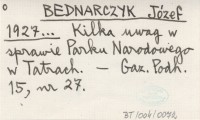 BEDNARCZYK Józef
1927... Kilka uwag w
sprawie Parku Narodowego
w Tatrach. — Gaz. Podh.
15, nr 27.
BT/004/0072